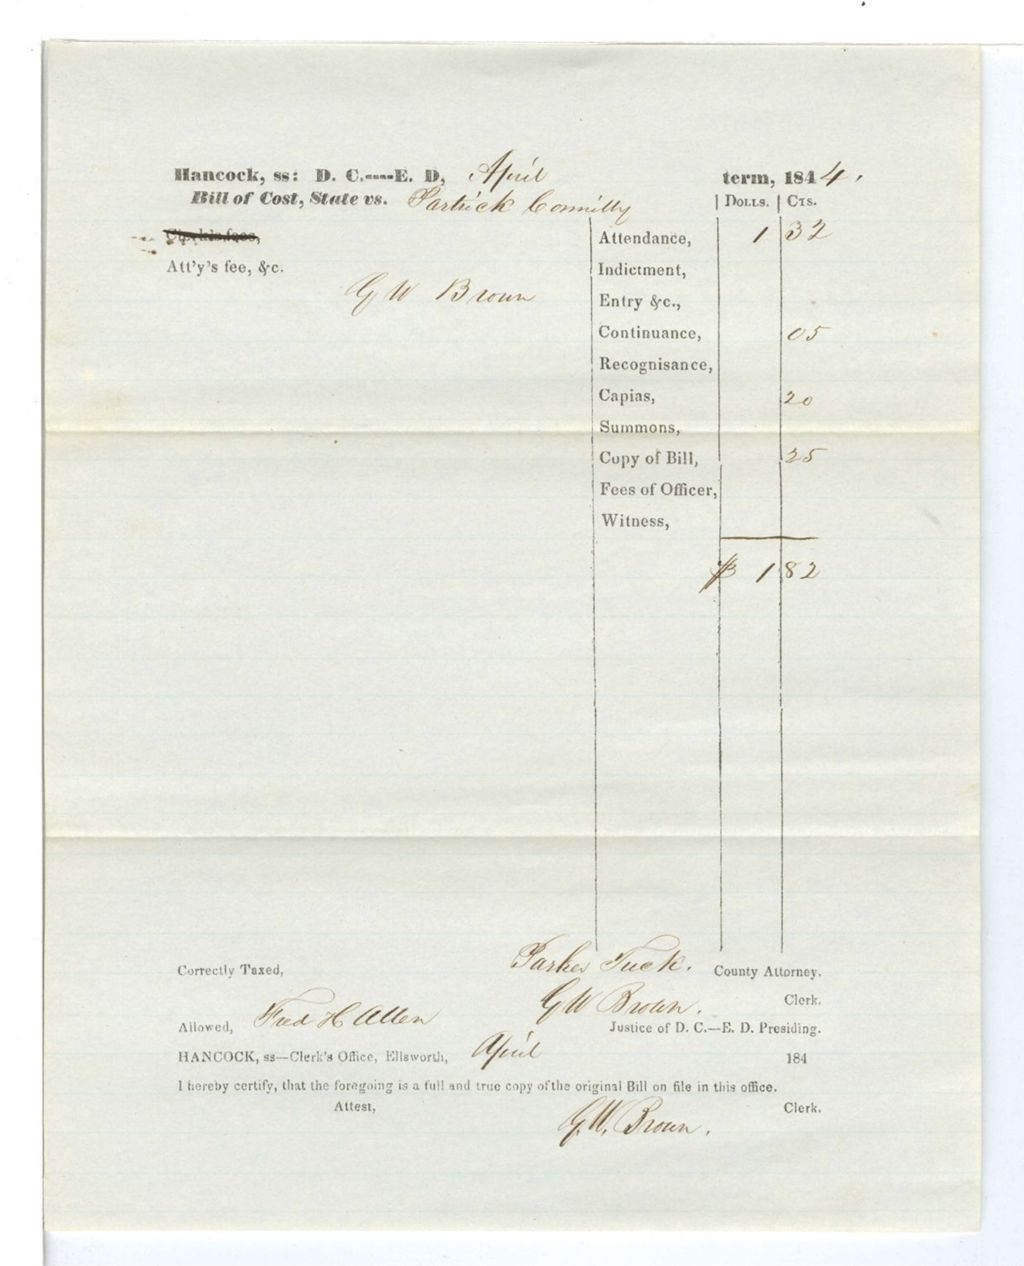 Hancock, ss: D. C.----E. D, April term, 1844.
Bill of Cost, State vs. Partrick Connilly | DOLLS. | CTS.
Clerk's fees,
Attendance, 1 32
Att'y's fee, &c.
Indictment,
G W Brown
Entry &c.,
Continuance, 05
Recognisance,
Capias, 20
Summons,
Copy of Bill, 25
Fees of Officer,
Witness,
$ 1 82
Correctly Taxed, Parker Tuck. County Attorney.
G W Brown. Clerk.
Allowed, Fred H Allen Justice of D. C.—E. D. Presiding.
HANCOCK, ss—Clerk's Office, Ellsworth, April 184
I hereby certify, that the foregoing is a full and true copy of the original Bill on file in this office.
Attest, G. W. Brown. Clerk.